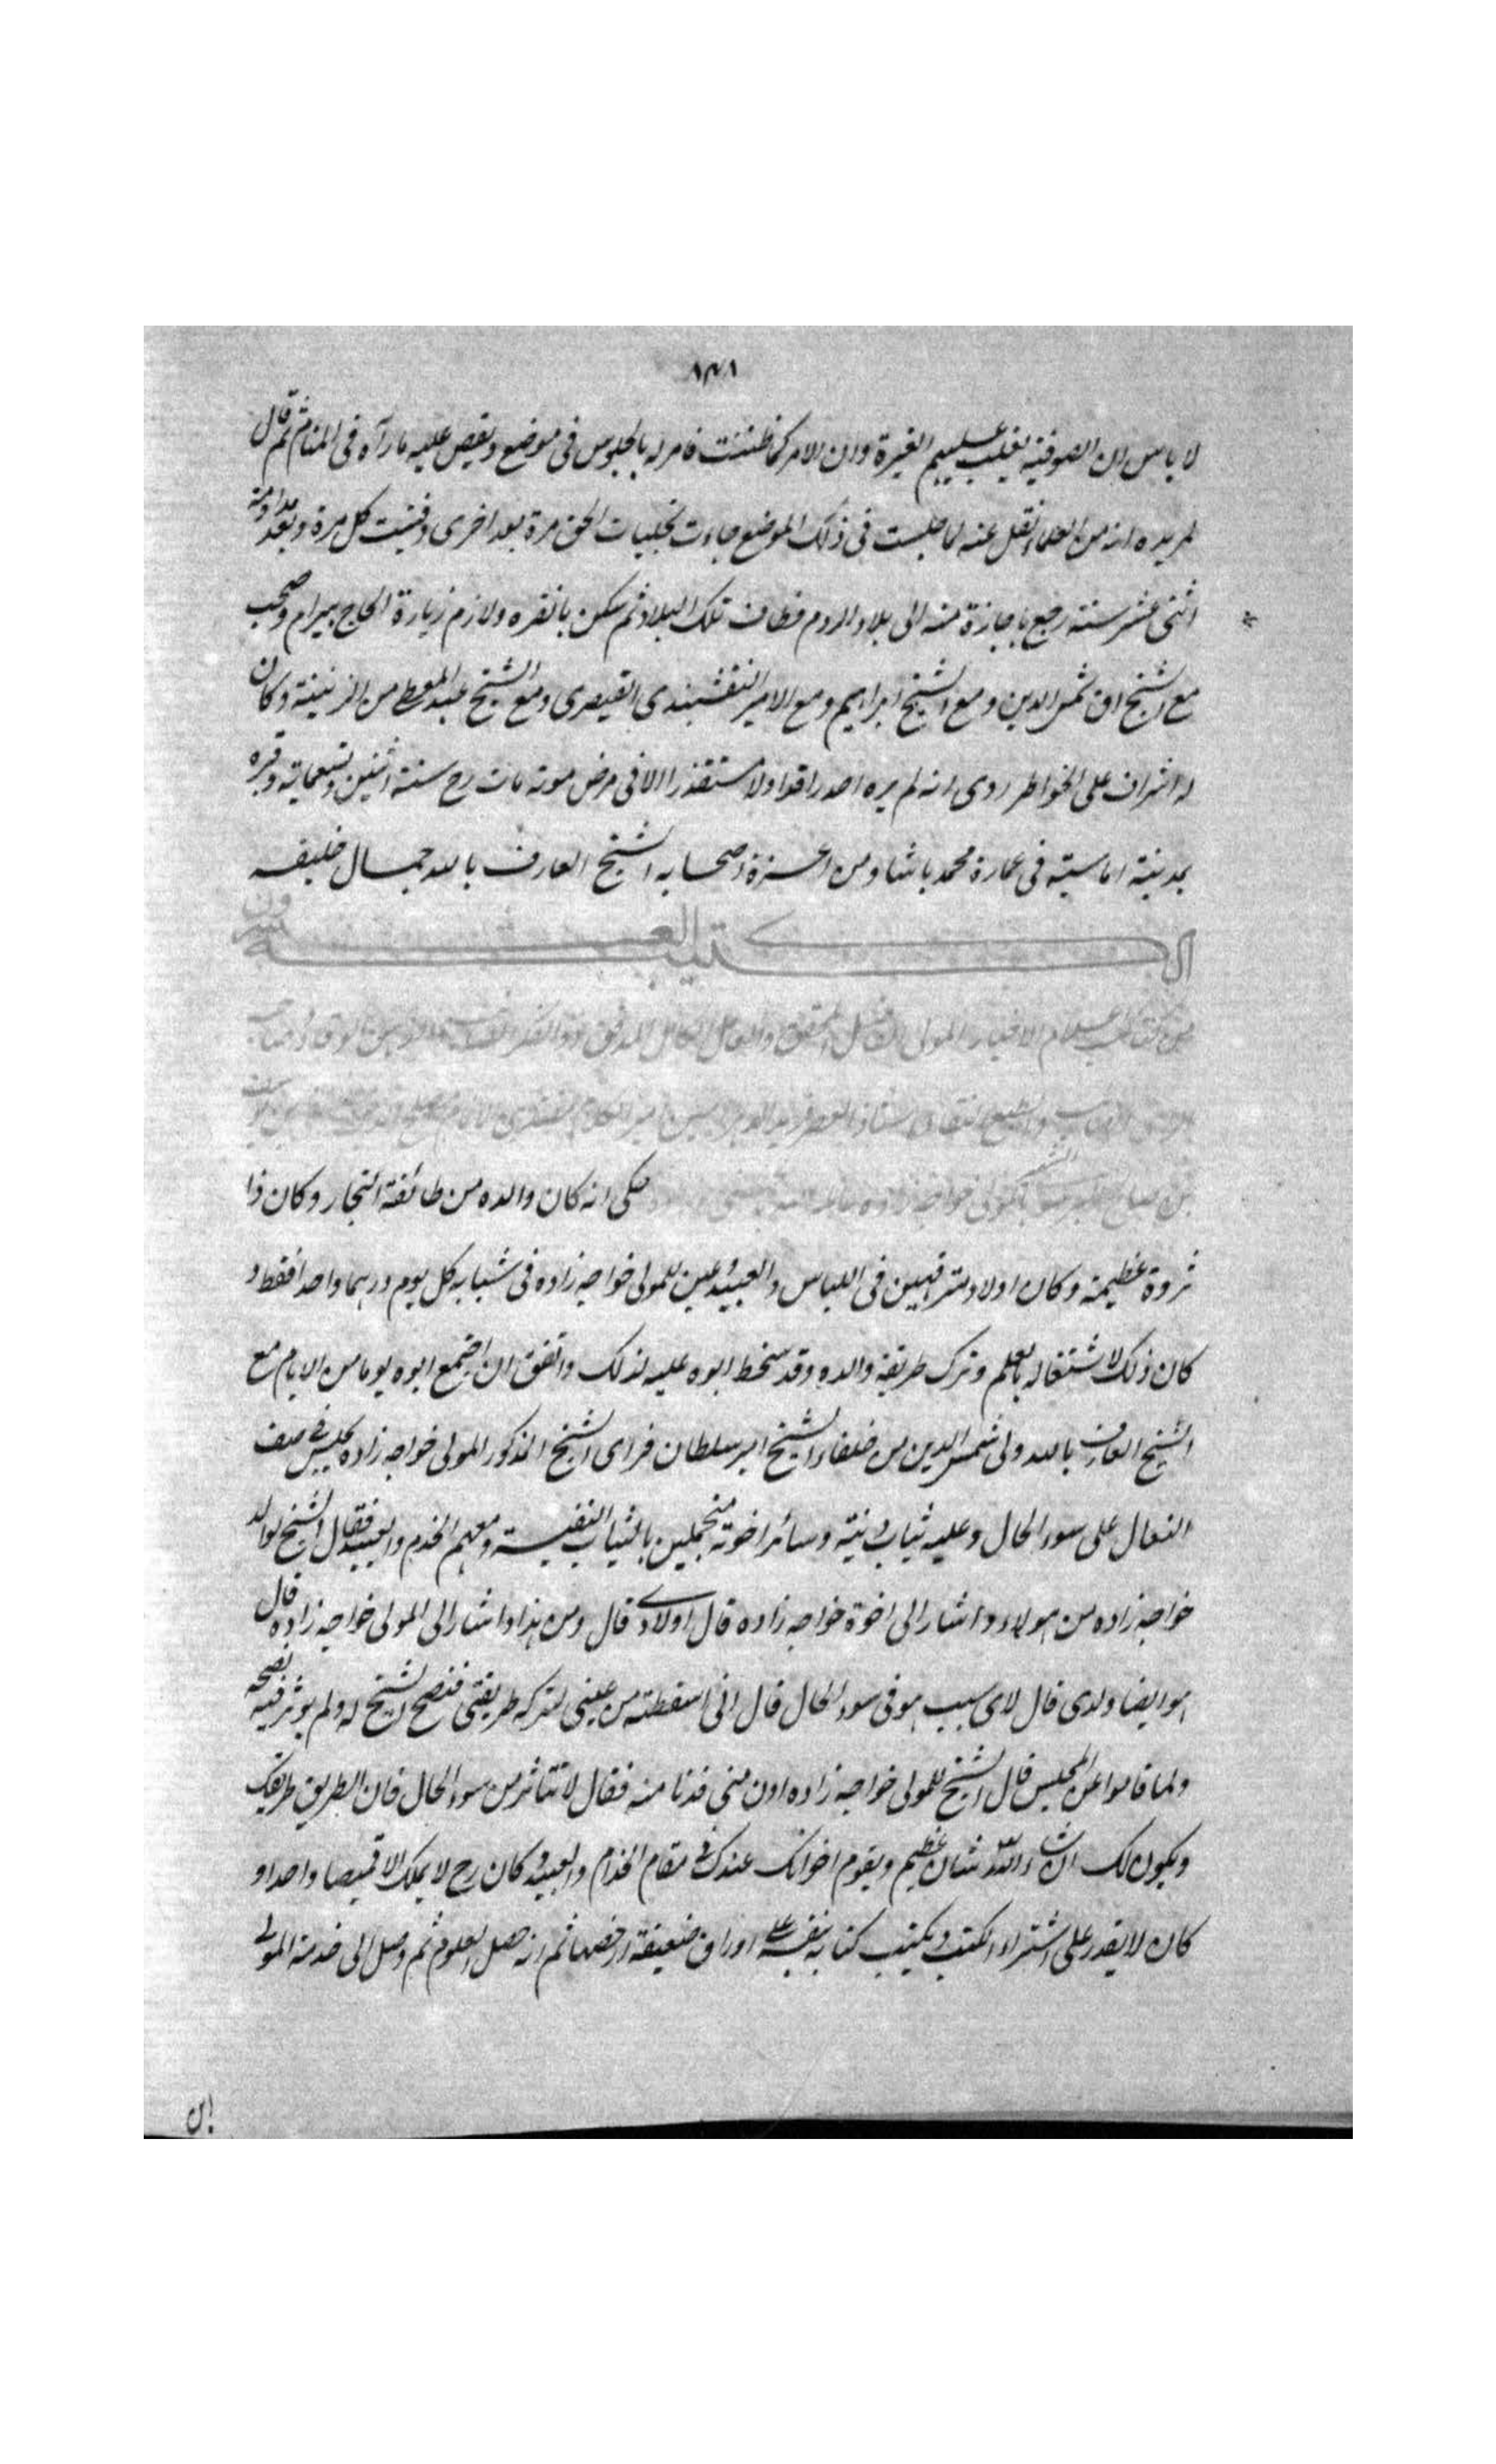 ١٣١
لا باس ان الصوفية يغلب عليهم الغيرة وان الامر كما ظننت فامر له بالجلوس فى موضع ويقص عليه ما رآه فى المنام ثم قال
لمريده انه من العلماء نقل عنه لما جلست فى ذلك الموضع جاءت تجليات الحق مرة بعد اخرى وفنيت كل مرة وبعد مداومة
اثنى عشر سنة رجع باجازة منه الى بلاد الروم فطاف تلك البلاد ثم سكن بانقره ولازم زيارة الحاج بيرام وصحب
مع الشيخ اق شمس الدين ومع الشيخ ابراهيم ومع الامير النقشبندى القيصرى ومع الشيخ عبد المعطى من الزينية وكان
له اشراف على الخواطر روى انه لم يره احد راقدا ولا مستقذرا الا فى مرض موته مات رح سنة اثنين وتسعماية وقبره
بمدينة اماسية فى عمارة محمد باشا ومن اعزة اصحابه الشيخ العارف بالله جمال خليفه
الكتيبة العشرون
من كتائب اعلام الاخيار المولى الفاضل المحقق والعامل الكامل المدقق
بن صالح المولى خواجه زاده حكى انه كان والده من طائفة التجار وكان ذا
ثروة عظيمة وكان اولاده مترفهين فى اللباس والعبيد وعين للمولى خواجه زاده فى شبابه كل يوم درهما واحدا فقط و
كان ذلك لاشتغاله بالعلم وترك طريقة والده وقد سخط ابوه عليه لذلك واتفق ان اجتمع ابوه يوما من الايام مع
الشيخ العارف بالله ولى شمس الدين من خلفاء الشيخ امير سلطان فراى الشيخ المذكور المولى خواجه زاده يجلس فى صف
النعال على سوء الحال وعليه ثياب دنية وسائر اخوته متجملين بالثياب النفيسة ومعهم الخدم والعبيد فقال الشيخ لوالد
خواجه زاده من هولاء واشار الى اخوة خواجه زاده قال اولادى قال ومن هذا واشار الى المولى خواجه زاده قال
هو ايضا ولدى قال لاى سبب هو فى سوء الحال قال انى اسقطته من عينى لتركه طريقتى فنصح الشيخ له ولم يوثر فيه نصحه
ولما قاموا عن المجلس قال الشيخ للمولى خواجه زاده ادن منى فدنا منه فقال لا تتاثر من سوء الحال فان الطريق طريقك
ويكون لك ان شاء الله شان عظيم ويقوم اخوانك عندك فى مقام الخدام والعبيد وكان رح لا يملك الا قميصا واحدا و
كان لا يقدر على اشتراء الكتب ويكتب كتابه بنفسه على اوراق ضعيفة لرخصها ثم انه حصل العلوم ثم وصل الى خدمة المولى
ابن